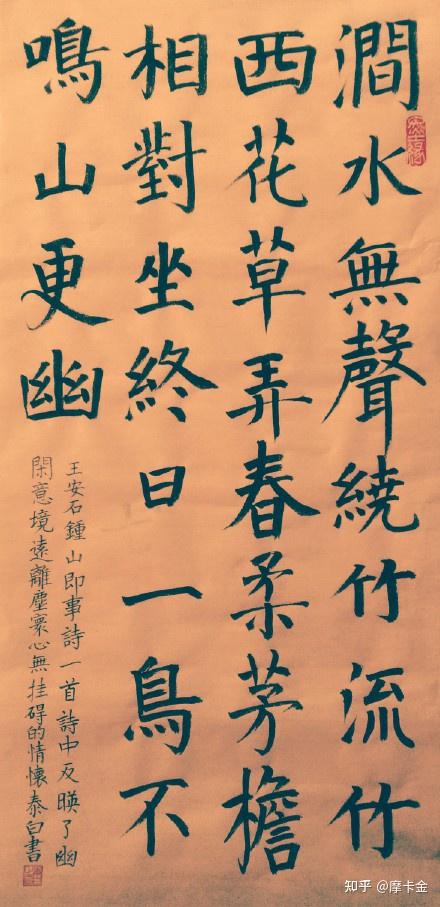 澗水無聲繞竹流竹
西花草弄春柔茅檐
相對坐終日一鳥不
鳴山更幽
王安石鍾山即事詩一首詩中反映了幽
閑意境遠離塵寰心無挂碍的情懷泰白書
知乎 @摩卡金